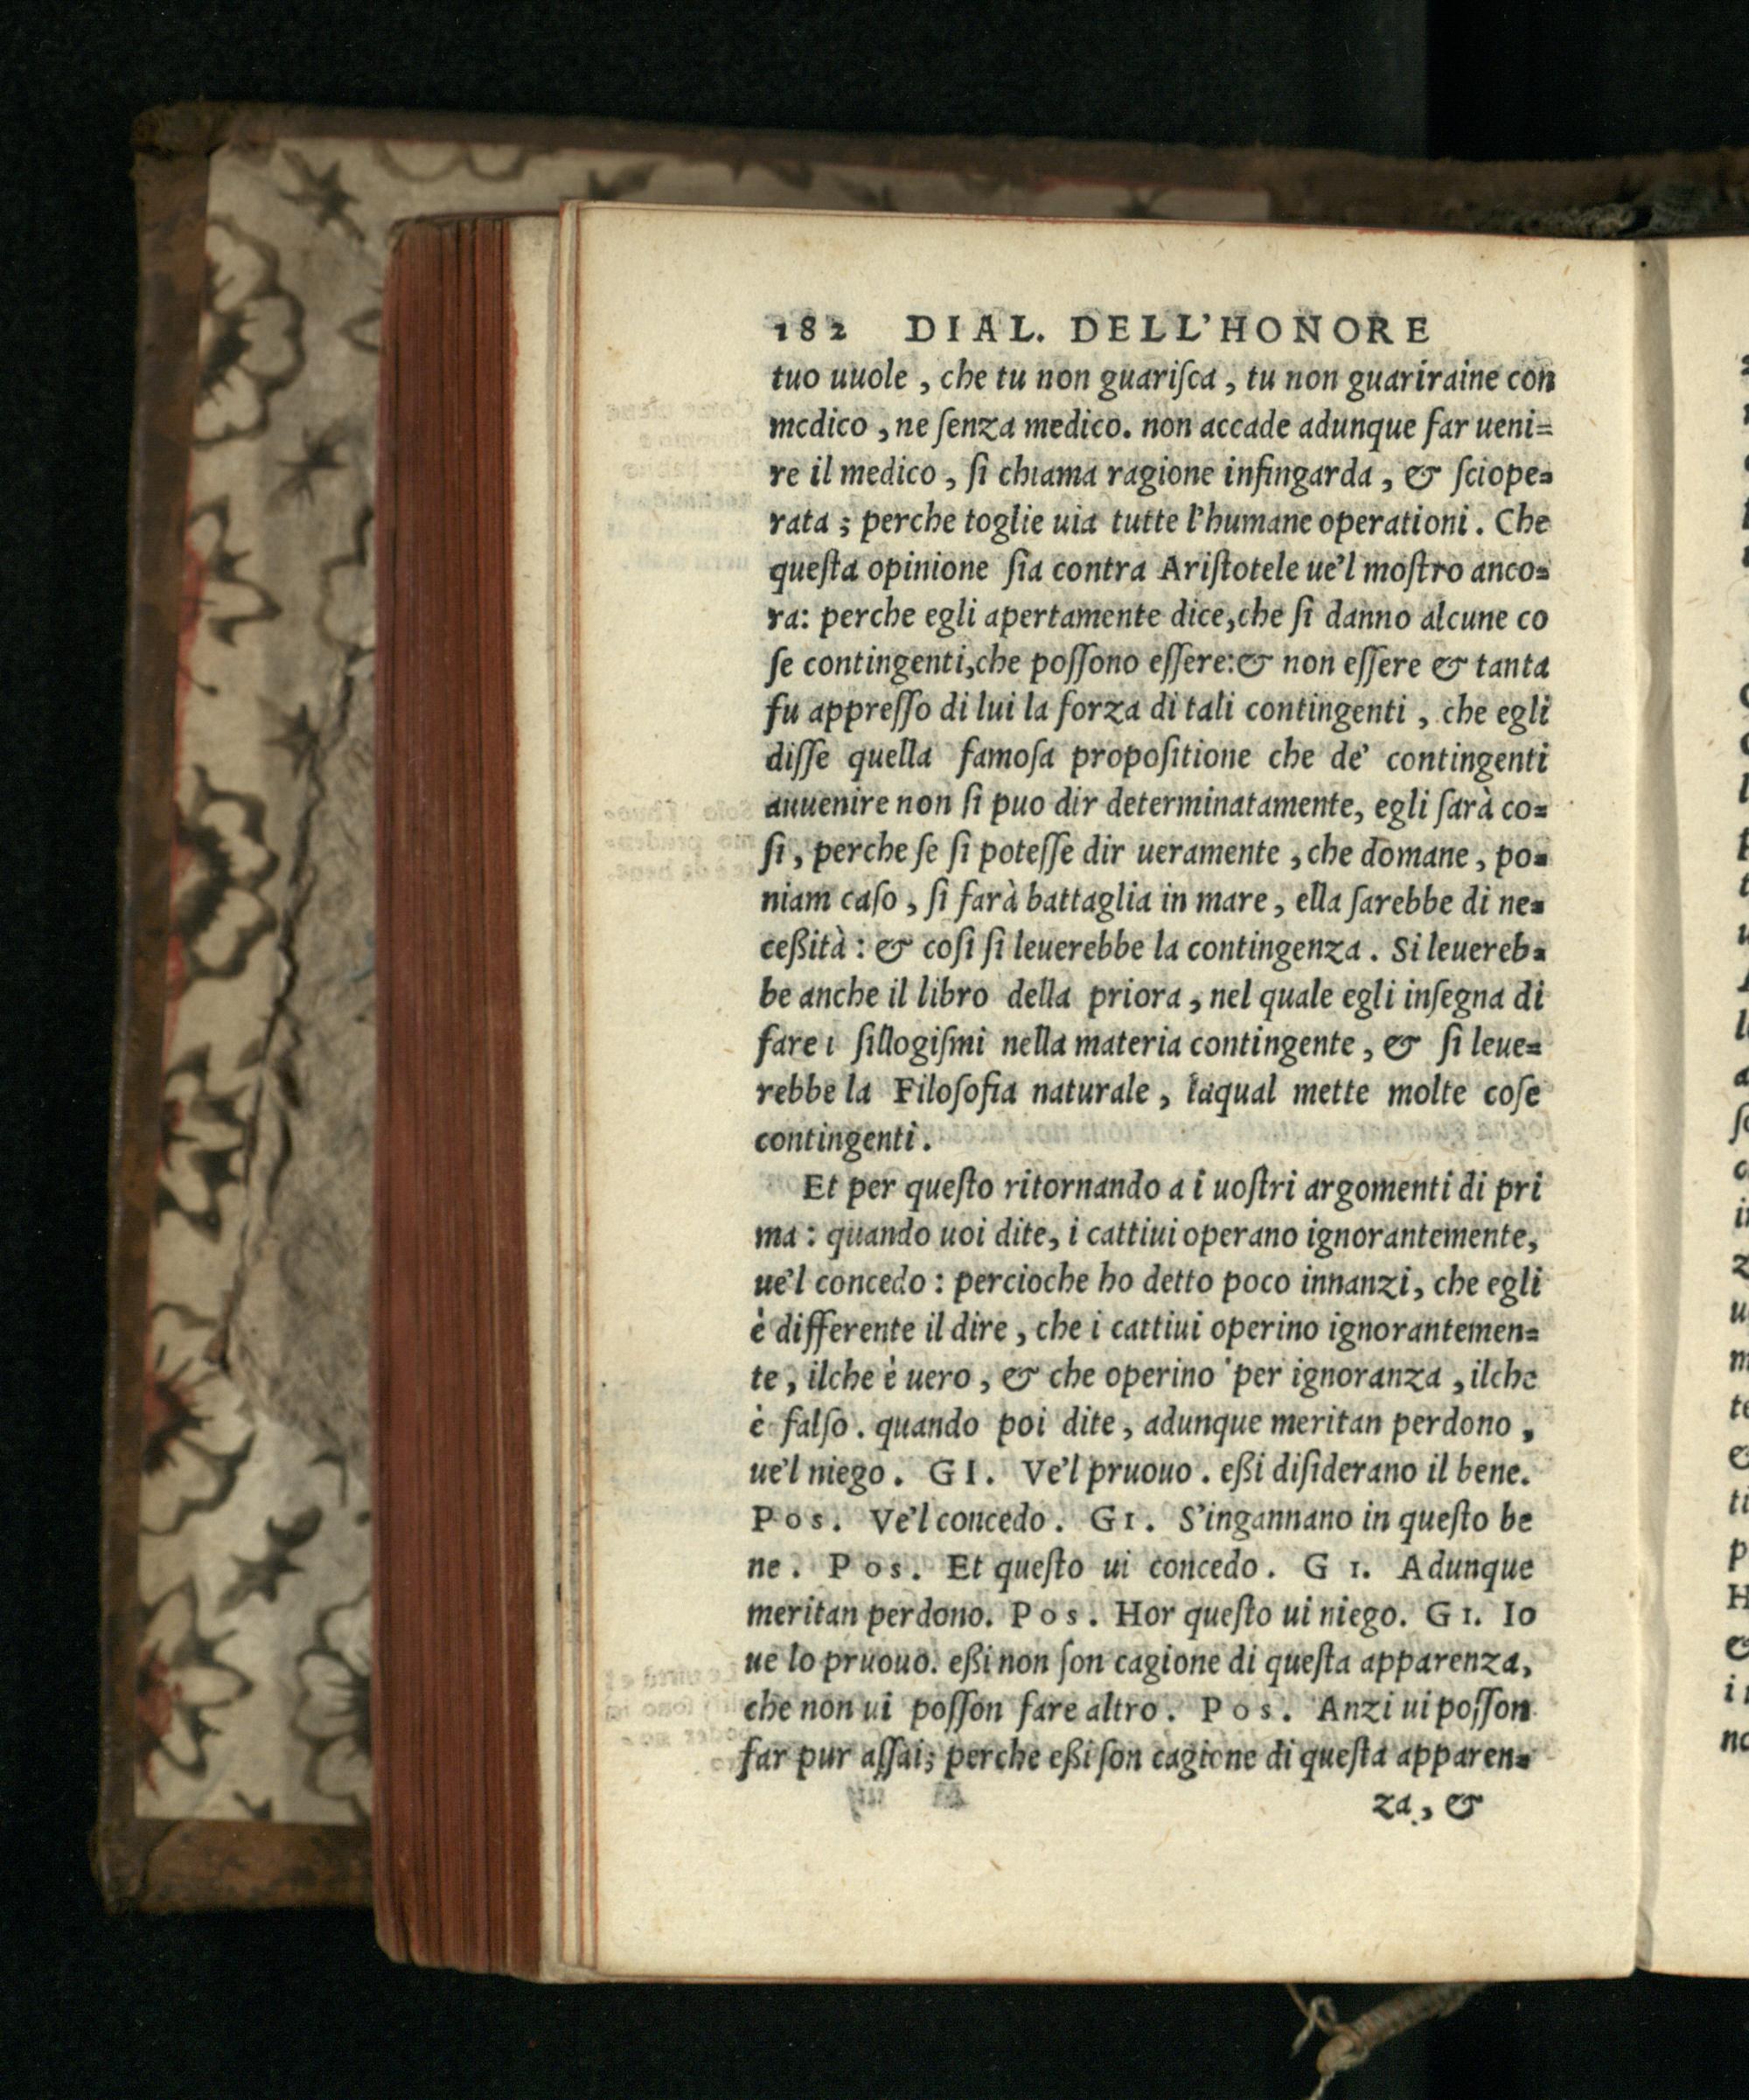 182 DIAL. DELL'HONORE
tuo uuole, che tu non guariſca, tu non guariraine con
medico, ne ſenza medico. non accade adunque far ueni=
re il medico, ſi chiama ragione infingarda, & ſciope=
rata; perche toglie uia tutte l'humane operationi. Che
queſta opinione ſia contra Ariſtotele ue'l moſtro anco=
ra: perche egli apertamente dice,che ſi danno alcune co
ſe contingenti,che poſſono eſſere:& non eſſere & tanta
fu appreſſo di lui la forza di tali contingenti, che egli
diſſe quella famoſa propoſitione che de' contingenti
auuenire non ſi puo dir determinatamente, egli ſarà co=
ſi, perche ſe ſi poteſſe dir ueramente, che domane, po=
niam caſo, ſi farà battaglia in mare, ella ſarebbe di ne=
ceßità: & coſi ſi leuerebbe la contingenza. Si leuereb=
be anche il libro della priora, nel quale egli inſegna di
fare i ſillogiſmi nella materia contingente, & ſi leue=
rebbe la Filoſofia naturale, laqual mette molte coſe
contingenti.
Et per queſto ritornando a i uoſtri argomenti di pri
ma: quando uoi dite, i cattiui operano ignorantemente,
ue'l concedo: percioche ho detto poco innanzi, che egli
è differente il dire, che i cattiui operino ignorantemen=
te, ilche è uero, & che operino per ignoranza, ilche
è falſo. quando poi dite, adunque meritan perdono,
ue'l niego. GI. Ve'l pruouo. eßi diſiderano il bene.
Pos. Ve'l concedo. GI. S'ingannano in queſto be
ne. Pos. Et queſto ui concedo. GI. Adunque
meritan perdono. Pos. Hor queſto ui niego. GI. Io
ue lo pruouo. eßi non ſon cagione di queſta apparenza,
che non ui poſſon fare altro. Pos. Anzi ui poſſon
far pur aſſai; perche eßi ſon cagione di queſta apparen=
za, &